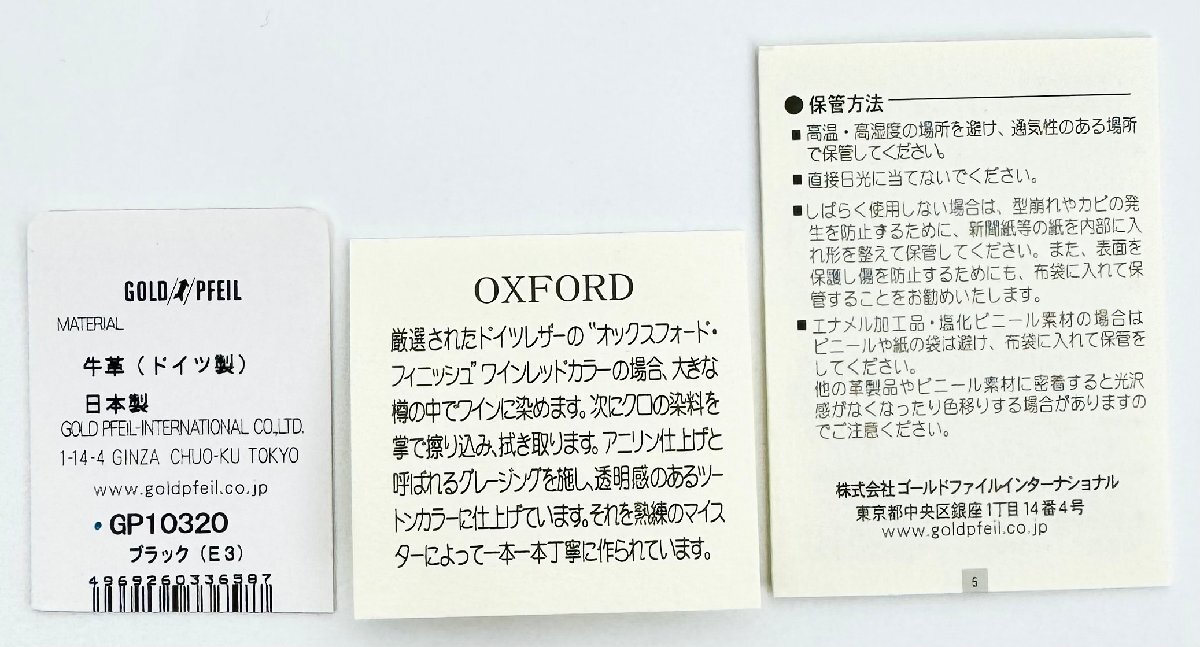 GOLD PFEIL
MATERIAL
牛革(ドイツ製)
日本製
GOLD PFEIL-INTERNATIONAL CO.,LTD.
1-14-4 GINZA CHUO-KU TOKYO
www.goldpfeil.co.jp
・GP10320
ブラック(E3)
4969260336587
OXFORD
厳選されたドイツレザーの“オックスフォード・
フィニッシュ”ワインレッドカラーの場合、大きな
樽の中でワインに染めます。次にクロの染料を
掌で擦り込み、拭き取ります。アニリン仕上げと
呼ばれるグレージングを施し、透明感のあるツー
トンカラーに仕上げています。それを熟練のマイス
ターによって一本一本丁寧に作られています。
●保管方法
■高温・高湿度の場所を避け、通気性のある場所
で保管してください。
■直接日光に当てないでください。
■しばらく使用しない場合は、型崩れやカビの発
生を防止するために、新聞紙等の紙を内部に入
れ形を整えて保管してください。また、表面を
保護し傷を防止するためにも、布袋に入れて保
管することをお勧めいたします。
■エナメル加工品・塩化ビニール素材の場合は
ビニールや紙の袋は避け、布袋に入れて保管を
してください。
他の革製品やビニール素材に密着すると光沢
感がなくなったり色移りする場合がありますの
でご注意ください。
株式会社ゴールドファイルインターナショナル
東京都中央区銀座1丁目14番4号
www.goldpfeil.co.jp